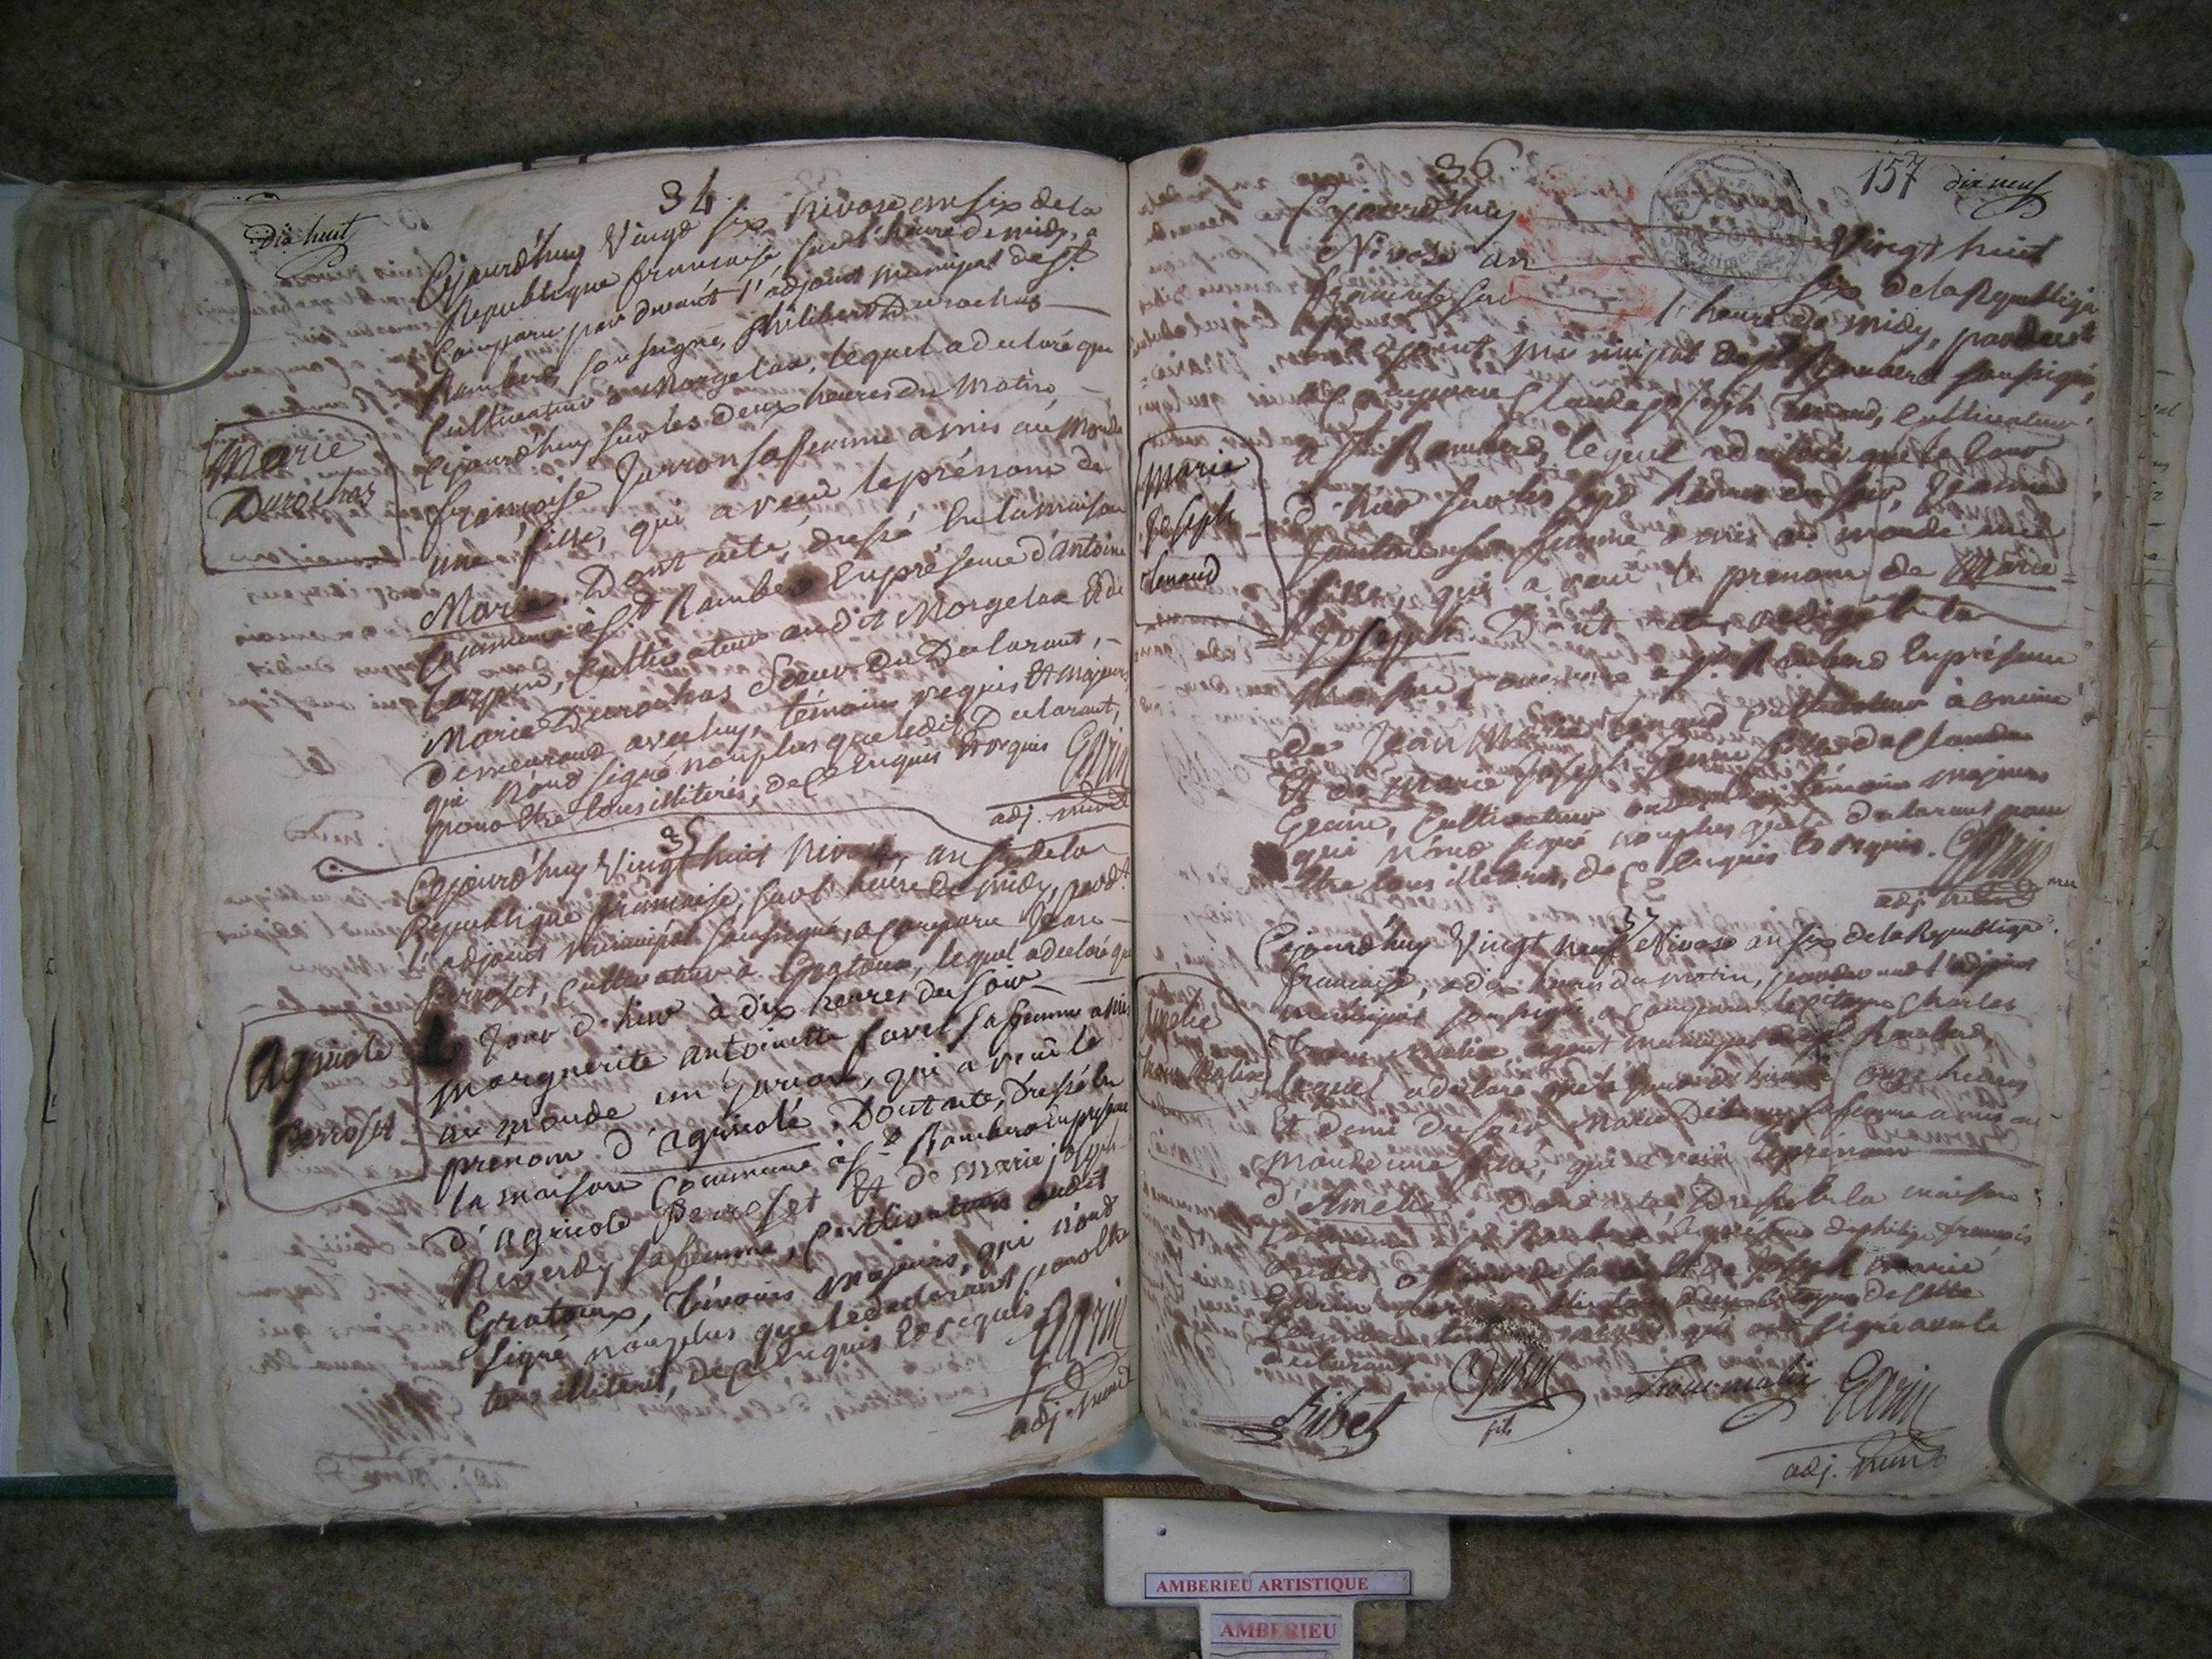 dix huit
34
Cejourd'huy Vingt six Nivose an six de la
Republique francaise sur l'heure de midy, a
Comparu par devant l'adjoint municipal de St
Rambert soussigné, Philibert Durochas
Cultivateur à Morgelax, lequel a declaré que
Cejourd'huy sur les deux heures du matin,
françoise Jarron sa femme a mis au monde
une fille, qui a reçu le prénom de
Marie. Dont acte, dressé en la maison
Commune à St Rambert En présence d'Antoine
Tarpin, Cultivateur audit Morgelax Et de
Marie Durochas Sœur du Declarant,
demeurant avec luy, témoins requis Et majeurs
qui n'ond signé non plus que ledit Declarant,
pour Etre tous illiterés, de ce Enquis Et requis Garin
adj. muni
Marie
Durochas
35
Cejourd'huy Vingt huit Nivose, an six de la
Republique francaise, sur l'heure de midy, pard.t
l'adjoint Municipal soussigné, a Comparu Jean
Perroset, Cultivateur à Gratoux, lequel a declaré que
le Jour d'hier à dix heures du soir
Marguerite Antoinette favel sa femme a mis
au monde un garcon, qui a reçu le
prenom d'agricole. Dont acte, Dressé En
la maison Commune à St Rambert En présence
d'agricole Perroset Et de Marie joseph
Reverdy sa femme, Cultivateurs audit
Gratoux, témoins Majeurs, qui n'ond
signé non plus que le declarant pour Etre
tous illiterés, de ce Enquis Et requis Garin
adj. muni
Agricole
Perroset
157 dix neuf
36
Cejourd'huy Vingt huit
Nivose an six de la Republique
francaise sur l'heure de midy, pardevant
l'adjoint municipal de St Rambert soussigné,
a Comparu Claude joseph Renaud, Cultivateur
à St Rambert, lequel a declaré que le Jour
d'hier sur les sept heures du soir,
sa femme a mis au monde une
fille, qui a reçu le prenom de Marie
Joseph. Dont acte redigé En la
Maison Commune à St Rambert En présence
de Jean Marie Renaud Cultivateur à
Et de Marie Joseph fille de Claude
Cultivateur témoins majeurs
qui n'ond signé non plus que le declarant pour
Etre tous illiterés, de ce Enquis Et requis. Garin
adj. muni
Marie
Joseph
Renaud
37
Cejourd'huy Vingt neuf Nivose an six de la Republique
francaise, a dix heures du matin, pardevant l'adjoint
municipal soussigné, a Comparu le citoyen Charles
Trocu agent municipal de St Rambert,
lequel a declaré que le jour d'hier à onze heures
Et demi du soir Marie sa femme a mis au
monde une fille, qui a reçu le prénom
d'Amélie. Dont acte Dressé En la maison
Commune à St Rambert En présence de philipe francois
officier de santé Et de Joseph Marie
Garin citoyens de cette
Commune, témoins requis qui ont signé avec le
declarant
Amélie
Ribet Garin fils Garin
adj. muni
AMBERIEU ARTISTIQUE
AMBERIEU